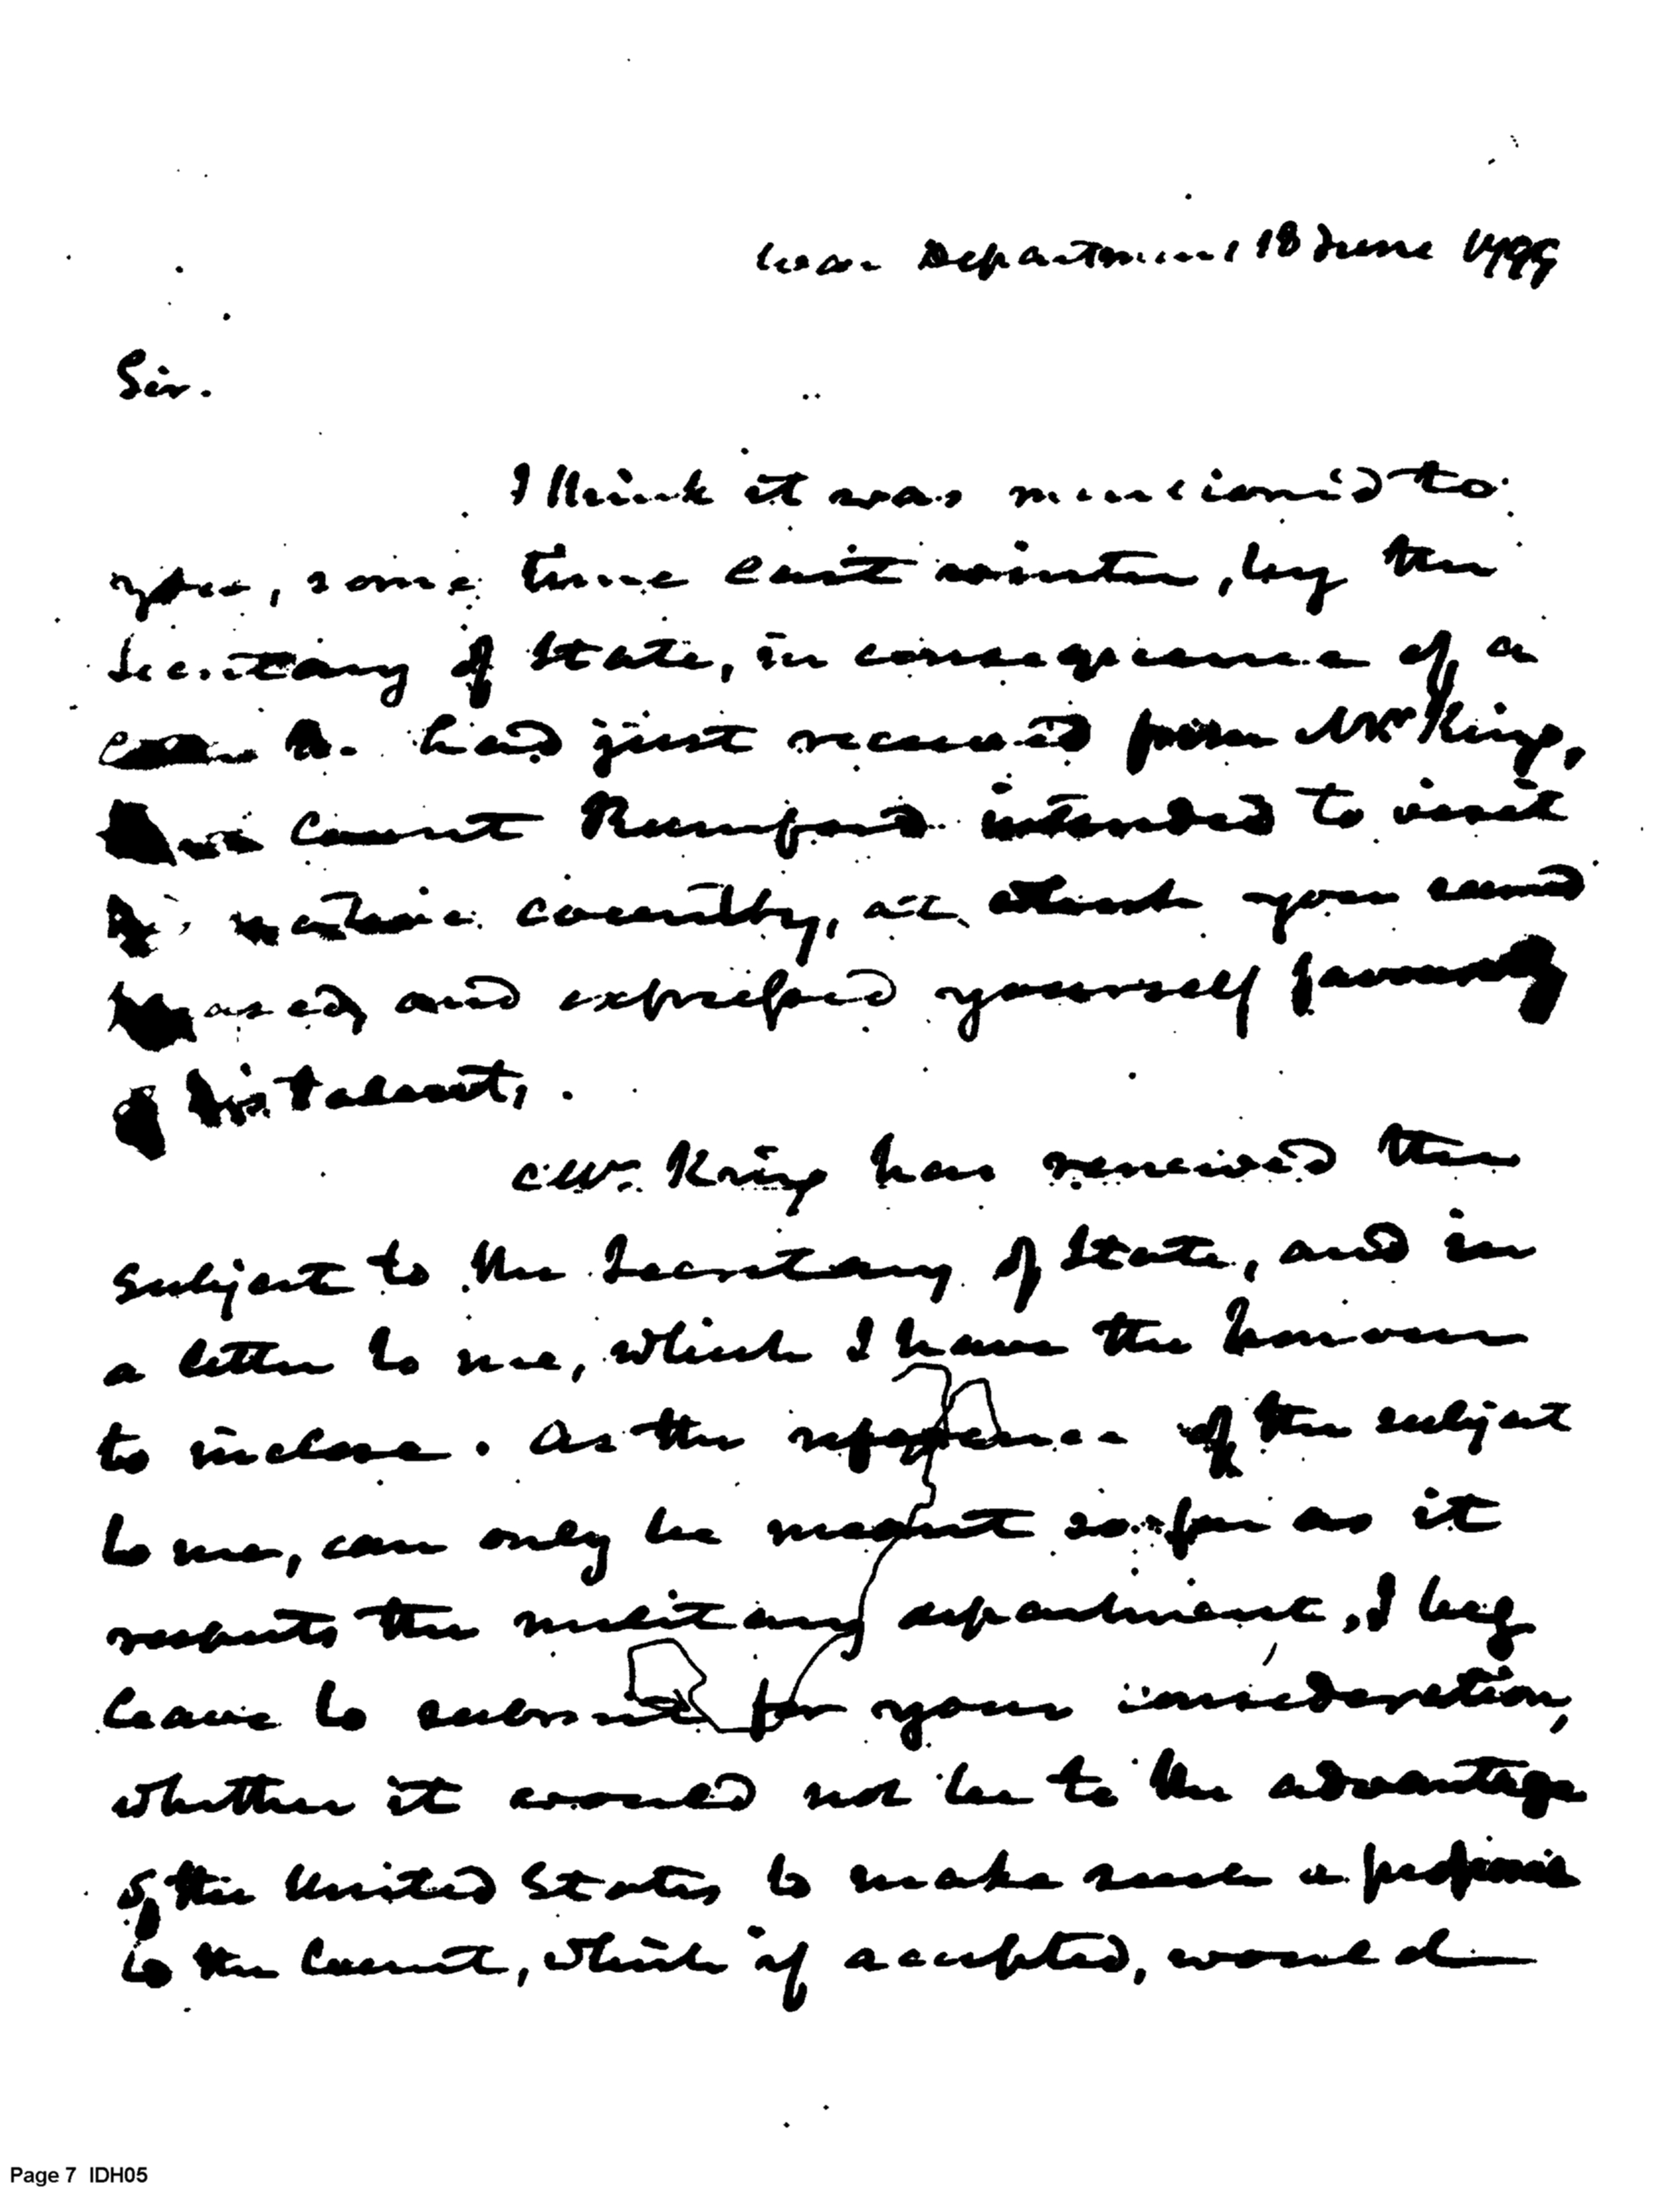 War Department 18 June 1799
Sir.
I think it was mentioned to
you, some time last winter, by the
Secretary of State, in consequence of a
he had just received from Mr King,
Count Rumford intended to visit
his native country, at which you seemd
and expressed yourself favourably
of his talents.
Mr. King has renewed this
subject to the Secretary of State, and in
a letter to me, which I have the honour
to inclose. As the reference of the subject
to me, can only be meant so far as it
respects the military department, I beg
leave to submit for your consideration,
whether it would not be to the advantage
of the United States to make such a
to the Count, which if accepted, would
Page 7 IDH05